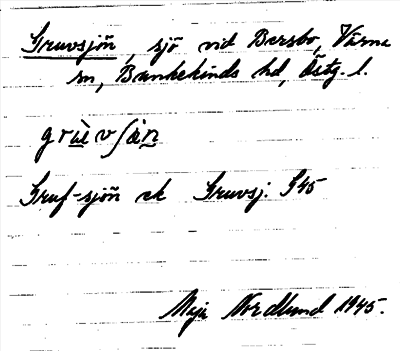 Gruvsjön, sjö vid Bersbo, Värna
sn, Bankekinds hd, Östg. l.
Gruf-sjön ek Gruvsj. G45
Maja Nordlund 1945.